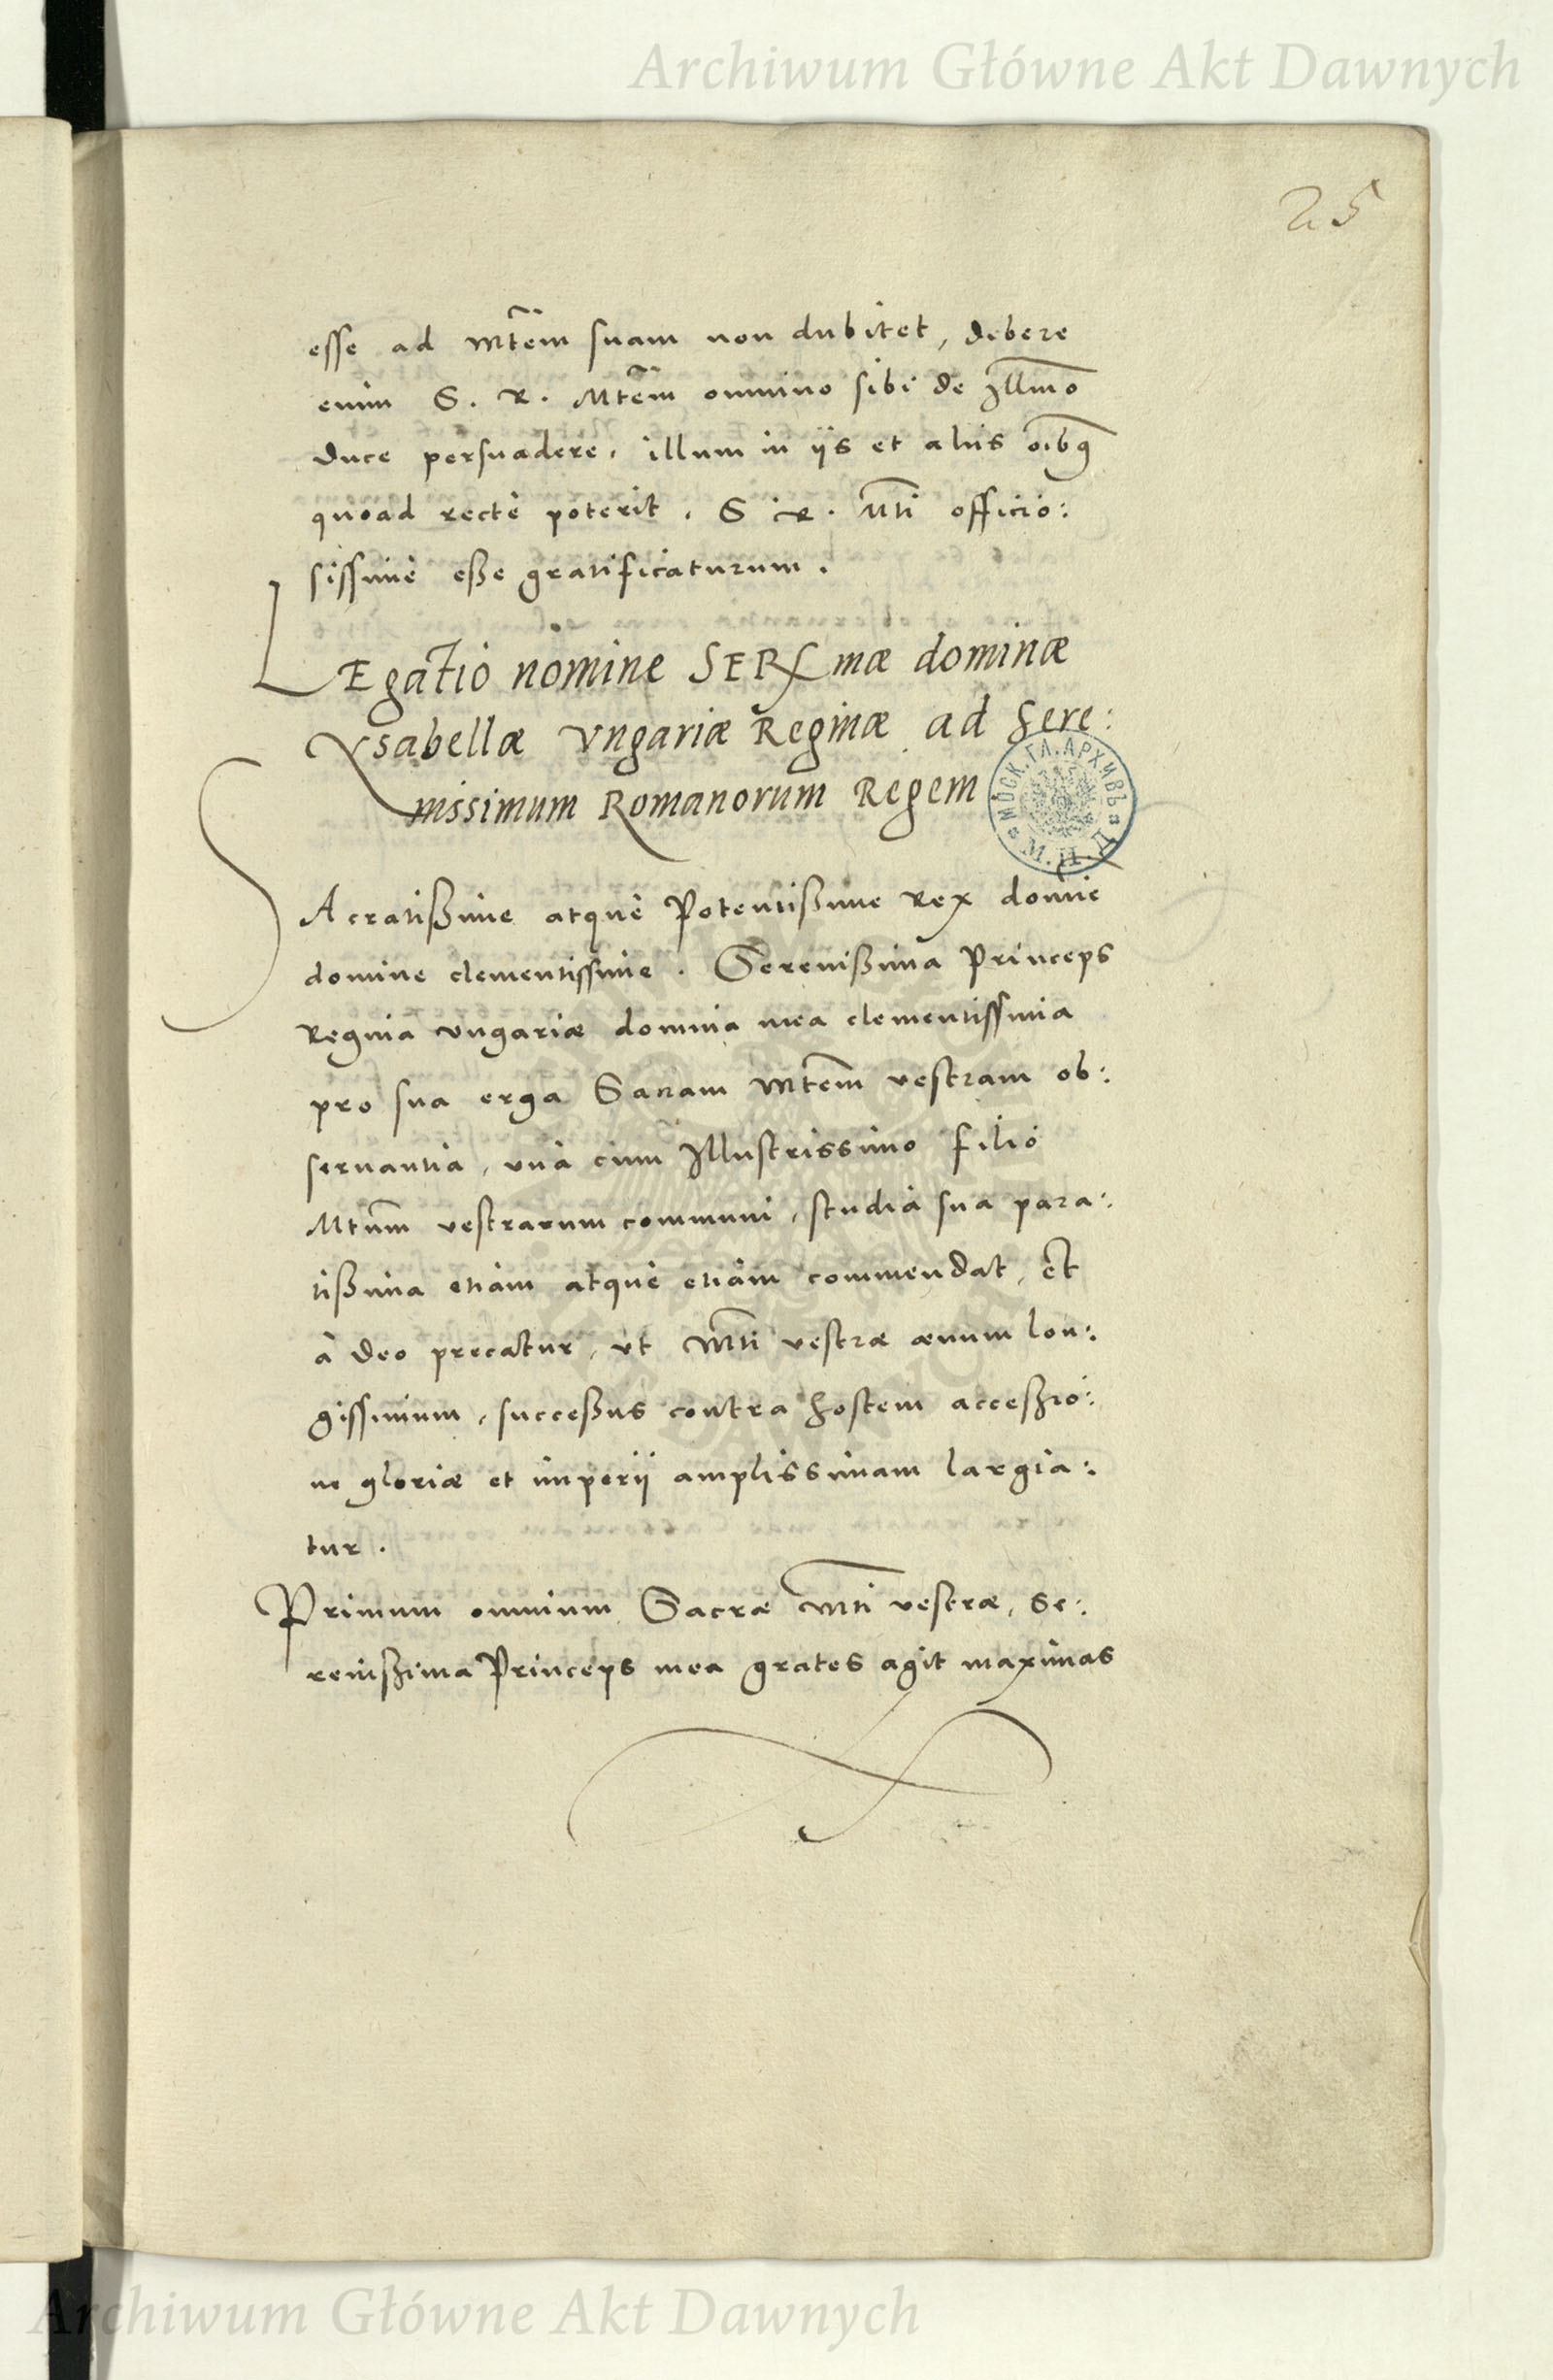 Archiwum Główne Akt Dawnych
25
esse ad Mtem suam non dubitet, debere
enim S. R. Mtem omnino sibi de Illmo
duce persuadere, illum in ijs et alijs oibus
quoad rectè poterit, S. R. Mti officio:
sissimè eße gratificaturum.
LEgatio nomine SERmæ dominæ
Ysabellæ Vngariæ Reginæ ad Sere:
nissimum Romanorum Regem
МОСК. ГЛ. АРХИВЪ М. И. Д.
SAcratißime atque Potentißime Rex domine
domine clementissime. Serenißima Princeps
Regina Vngariæ domina mea clementissima
pro sua erga Sacram Mtem vestram ob:
seruantia, vnà cum Illustrissimo filio
Mtum vestrarum communi, studia sua para:
tißima etiam atque etiam commendat, et
à deo precatur, vt Mti vestræ æuum lon:
gissimum, succeßus contra hostem acceßio:
ne gloriæ et imperij amplissimam largia:
tur.
Primum omnium Sacræ Mti vestræ, Se:
renißima Princeps mea grates agit maximas
Archiwum Główne Akt Dawnych